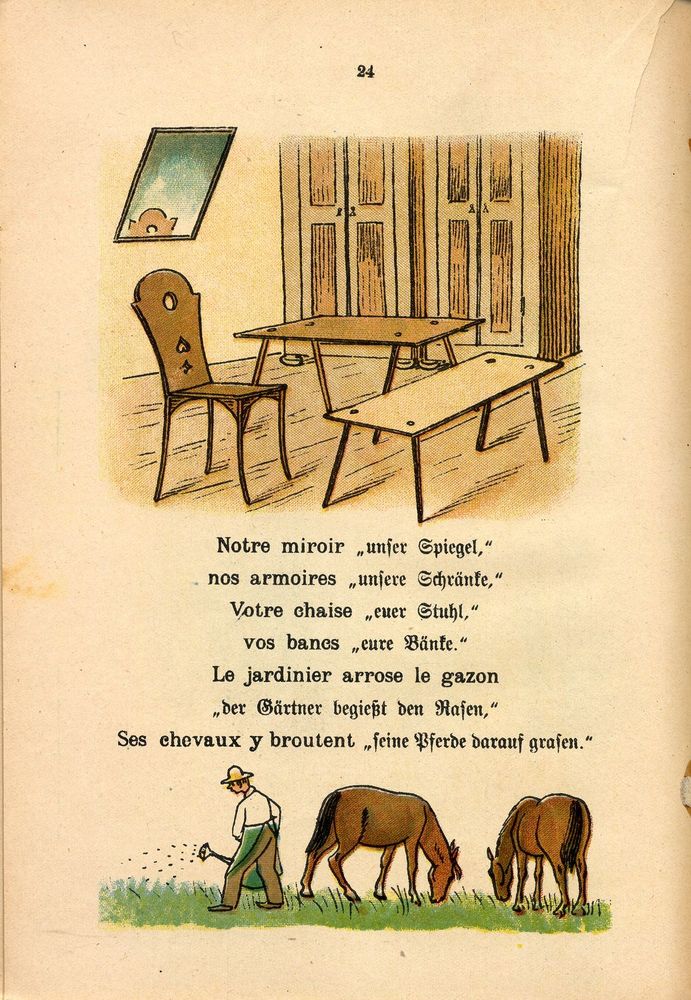 24
Notre miroir „unser Spiegel,“
nos armoires „unsere Schränke,“
Votre chaise „euer Stuhl,“
vos bancs „eure Bänke.“
Le jardinier arrose le gazon
„der Gärtner begießt den Rasen,“
Ses chevaux y broutent „seine Pferde darauf grasen.“